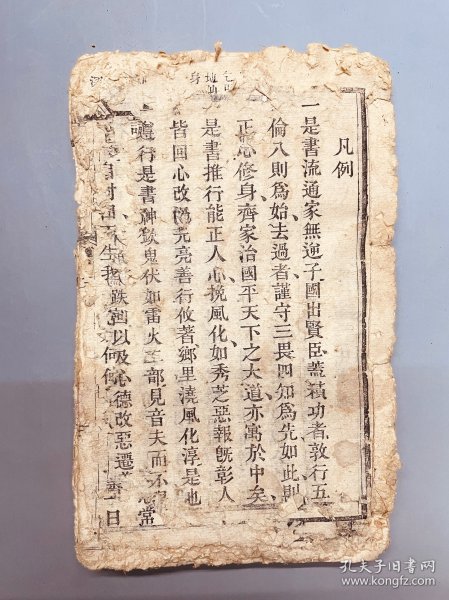 凡例
一是書流通家無逆子國出賢臣蓋積功者敦行五
倫八則爲始去過者謹守三畏四知爲先如此則
正心修身齊家治國平天下之大道亦寓於中矣
是書推行能正人心挽風化如秀芝惡報旣彰人
皆回心改 元亮善行攸著鄉里澆風化淳是也
行是書神欽鬼伏如雷火 部見音夫而不 常
生我 跌 以及心德改惡遷 日
孔夫子旧书网
www.kongfz.com